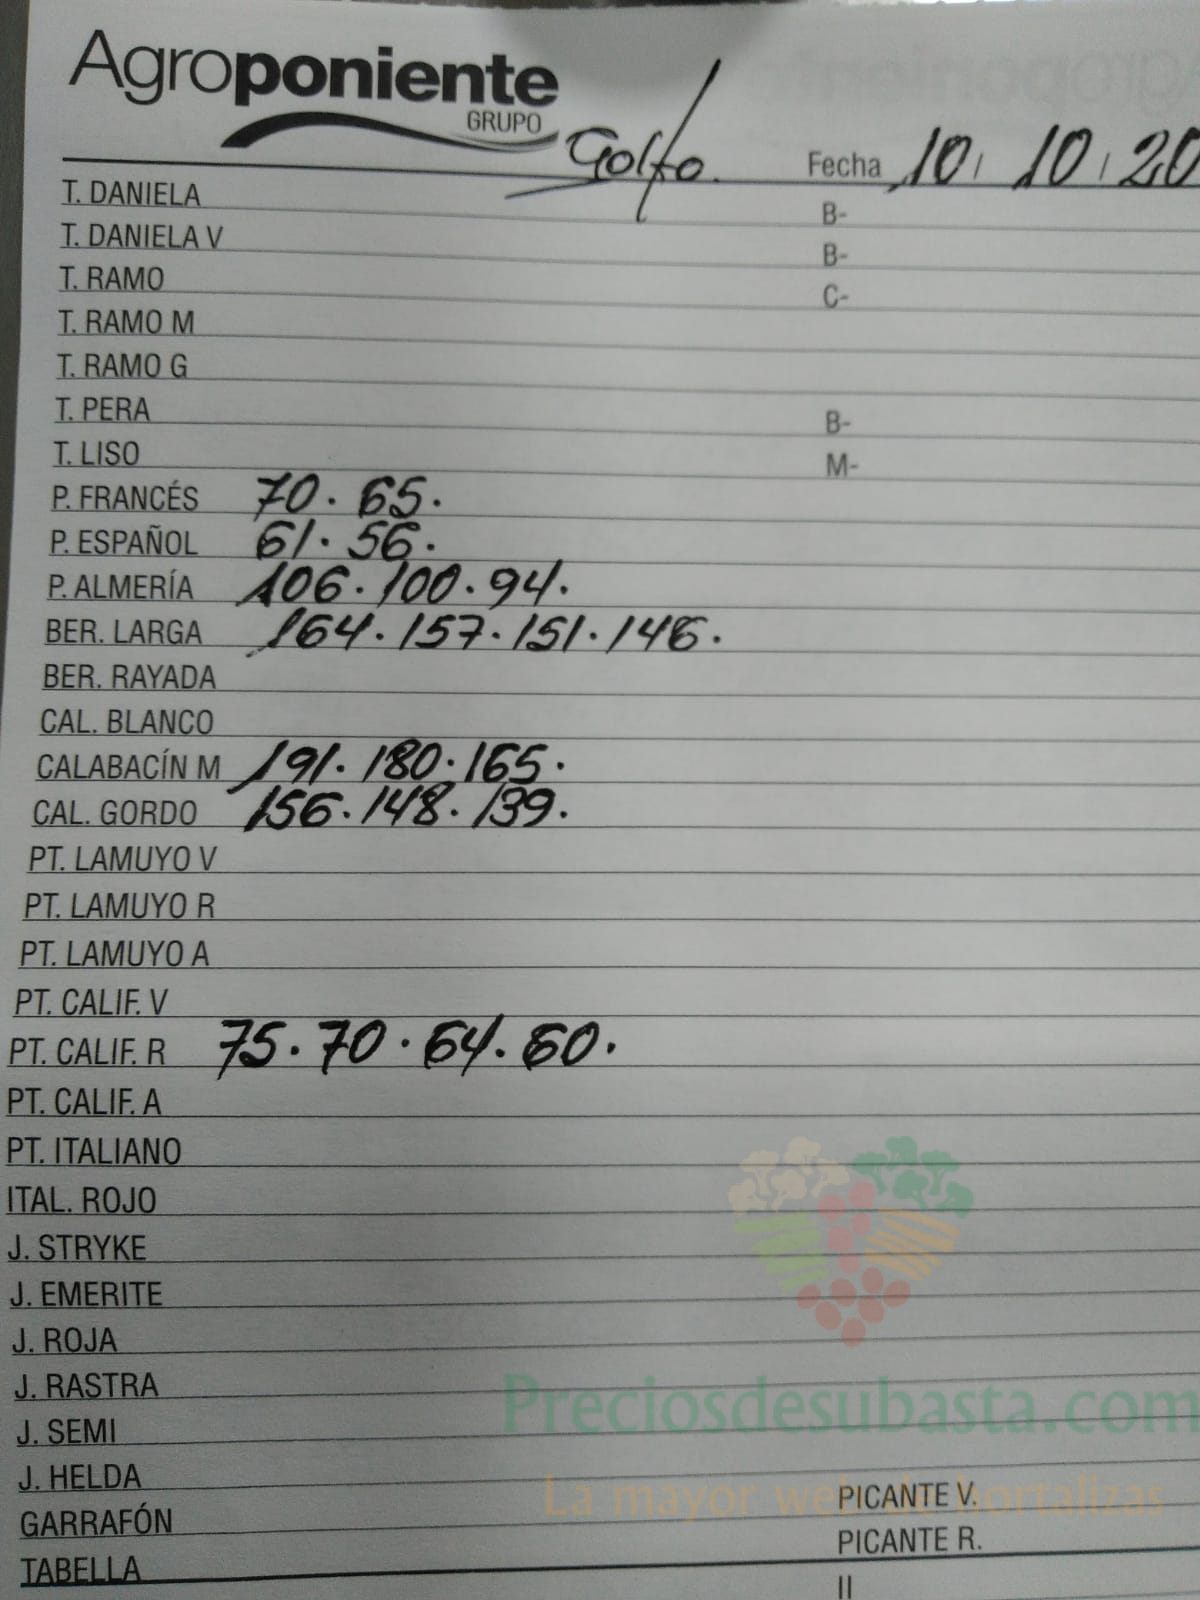 Agroponiente
GRUPO
Golfo. Fecha 10 / 10 / 20
T. DANIELA B-
T. DANIELA V B-
T. RAMO C-
T. RAMO M
T. RAMO G
T. PERA B-
T. LISO M-
P. FRANCÉS 70. 65.
P. ESPAÑOL 61. 56.
P. ALMERÍA 106. 100. 94.
BER. LARGA 164. 157. 151. 146.
BER. RAYADA
CAL. BLANCO
CALABACÍN M 191. 180. 165.
CAL. GORDO 156. 148. 139.
PT. LAMUYO V
PT. LAMUYO R
PT. LAMUYO A
PT. CALIF. V
PT. CALIF. R 75. 70. 64. 60.
PT. CALIF. A
PT. ITALIANO
ITAL. ROJO
J. STRYKE
J. EMERITE
J. ROJA
J. RASTRA
Preciosdesubasta.com
J. SEMI
J. HELDA
La mayor web de hortalizas
PICANTE V.
GARRAFÓN
PICANTE R.
TABELLA
II